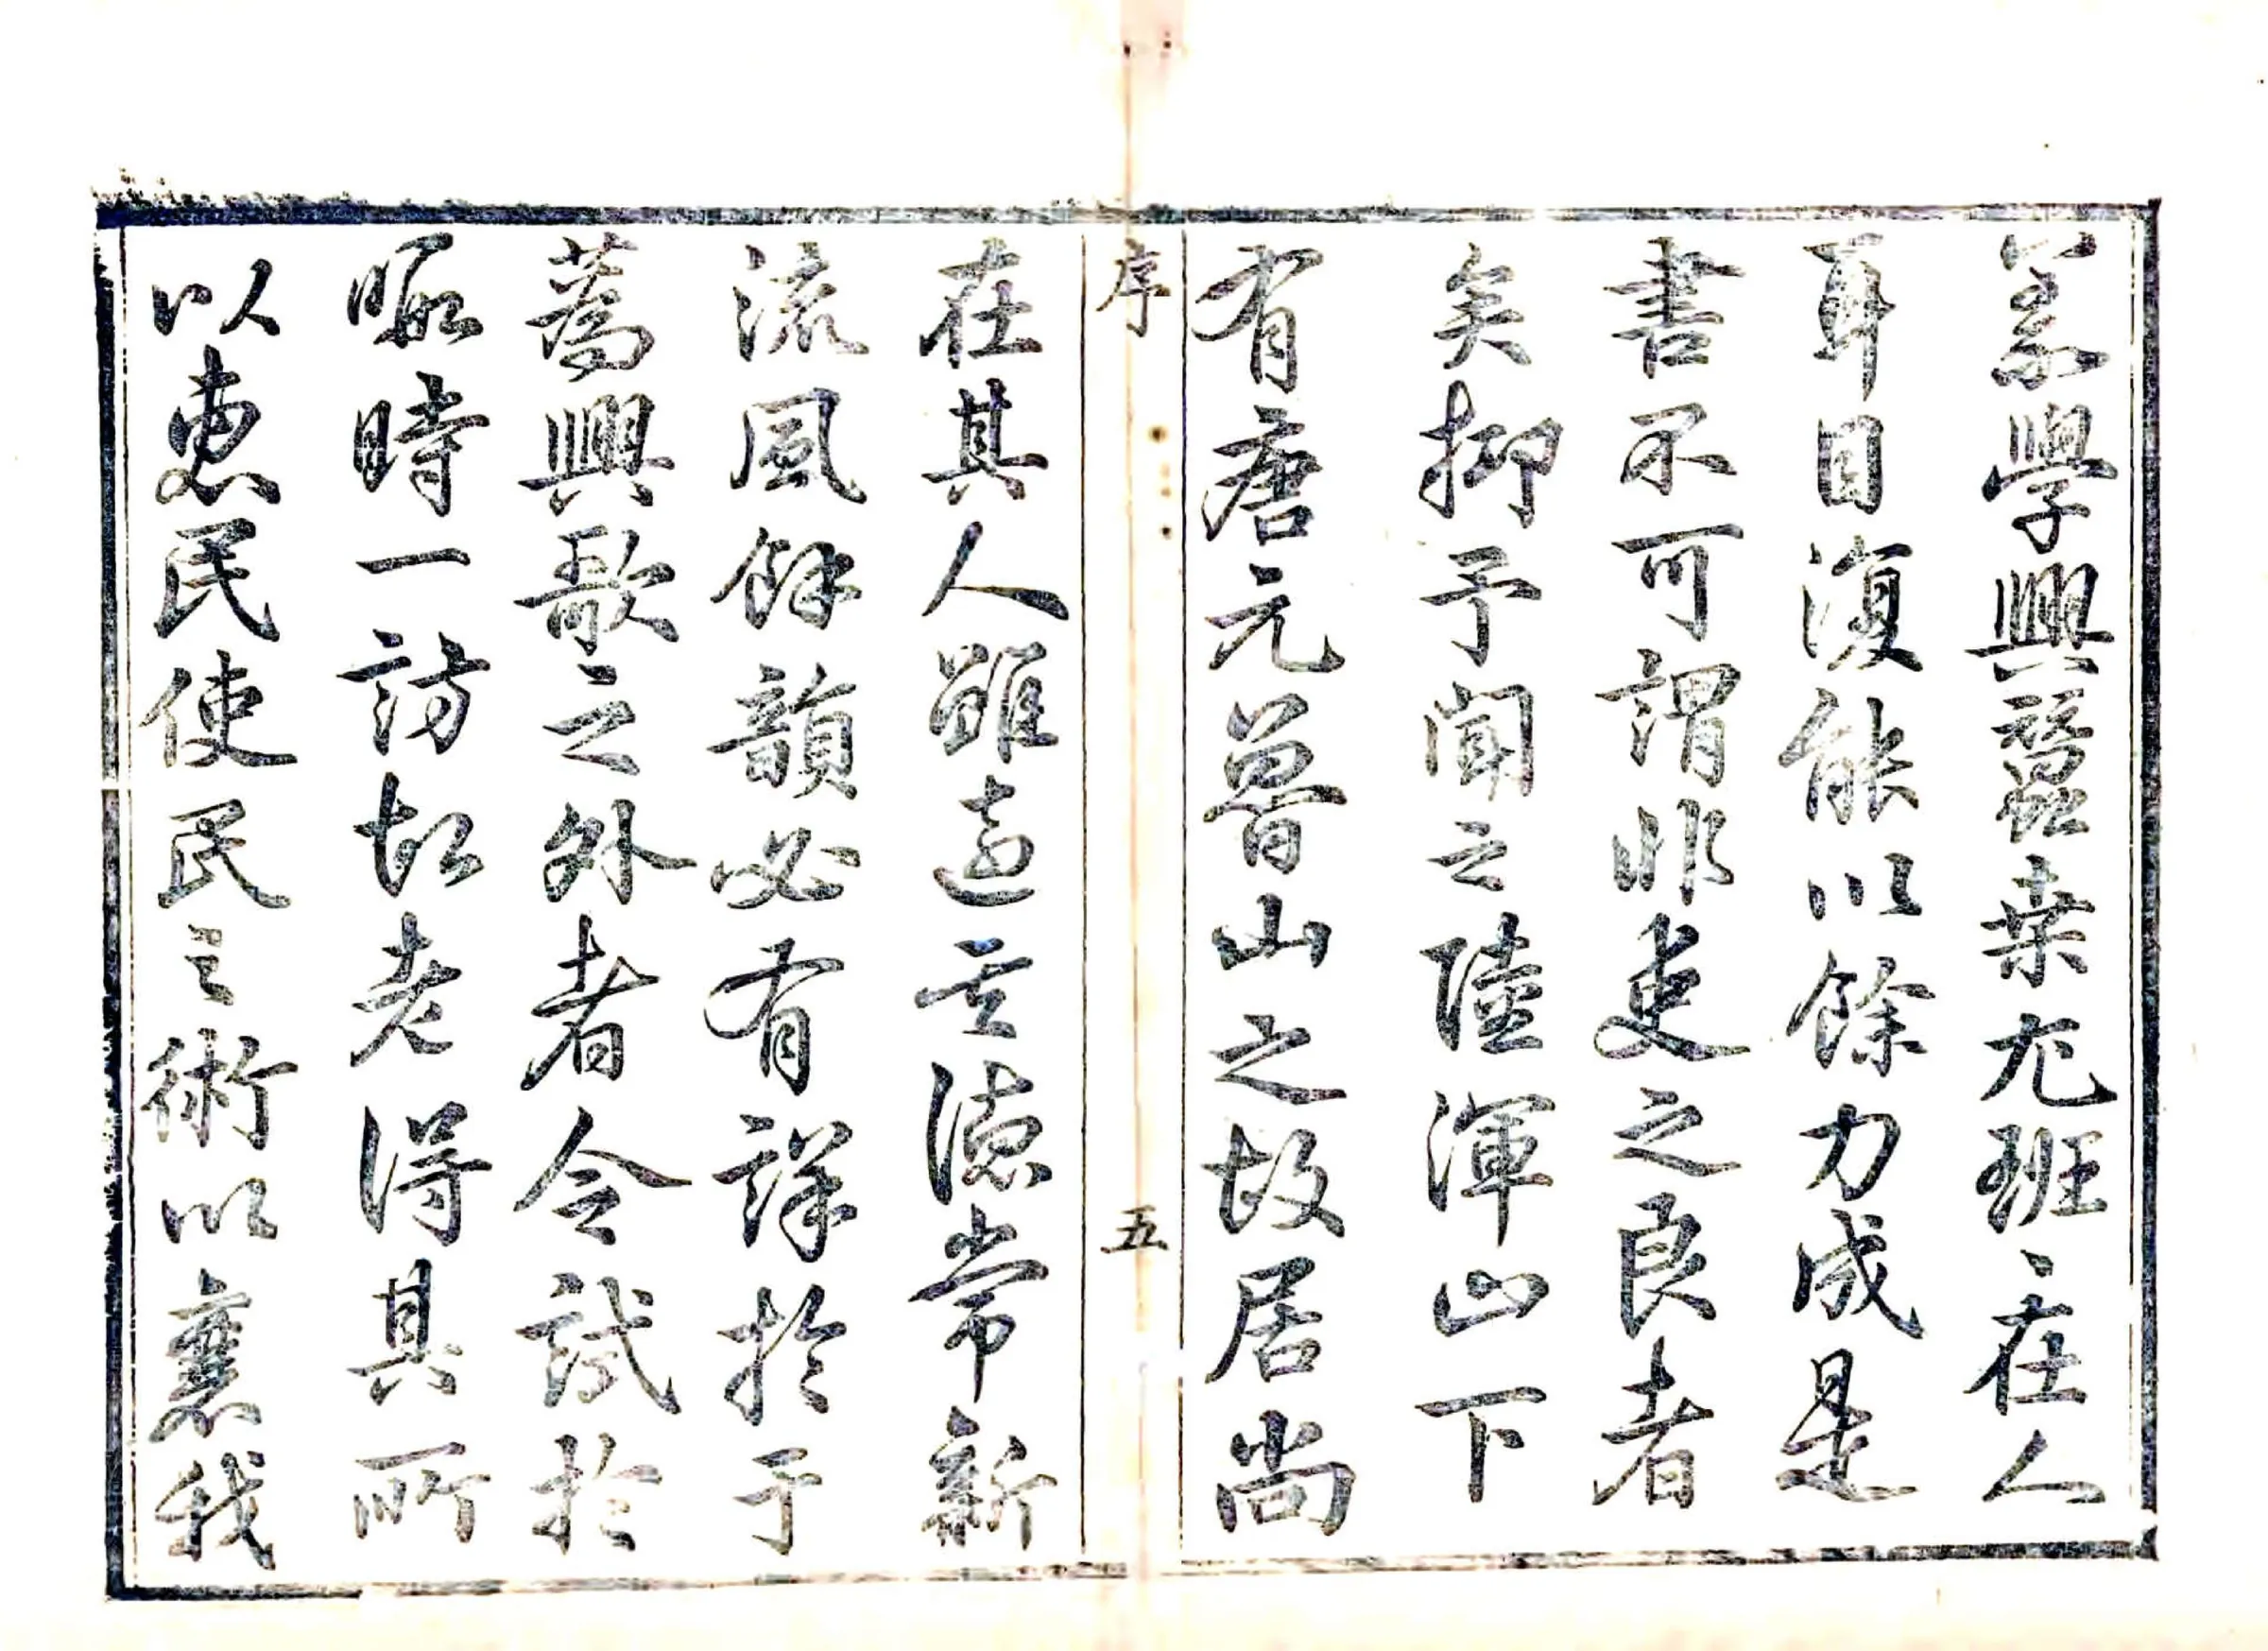 義學興蠶桒尤班〻在人
耳目復能以餘力成是
書不可謂非吏之良者
矣抑予聞之陸渾山下
有唐元魯山之故居尚
序
五
在其人雖遠其德常新
流風餘韻必有詳於于
蒍興歌之外者令試於
暇時一訪故老得其所
以惠民使民之術以襄我